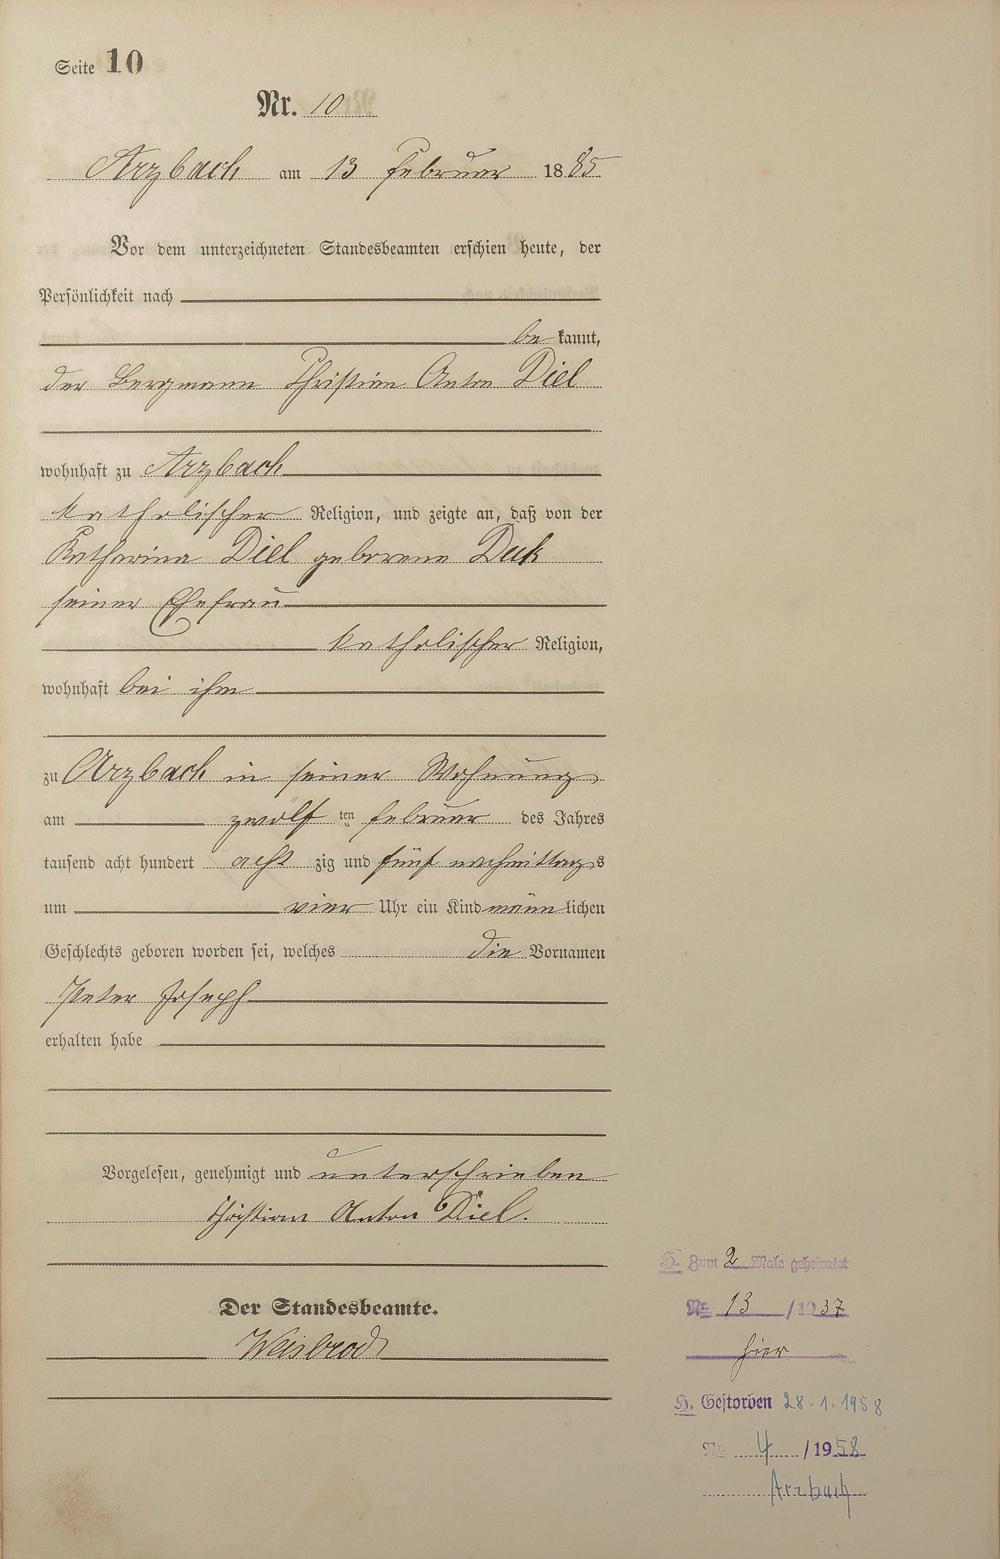 Seite 10
Nr. 10
Arzbach am 13 Februar 1885
Vor dem unterzeichneten Standesbeamten erschien heute, der
Persönlichkeit nach
bekannt,
der Bergmann Christian Anton Diel
wohnhaft zu Arzbach
katholischer Religion, und zeigte an, daß von der
Katharina Diel geborene
seiner Ehefrau
katholischer Religion,
wohnhaft bei ihm
zu Arzbach in seiner Wohnung
am zwölf ten Februar des Jahres
tausend acht hundert acht zig und fünf nachmittags
um vier Uhr ein Kind männlichen
Geschlechts geboren worden sei, welches die Vornamen
Peter Joseph
erhalten habe
Vorgelesen, genehmigt und unterschrieben
Christian Anton Diel.
Der Standesbeamte.
Weisbrod
H. Zum 2 Male geheiratet
Nr. 13 /1937
hier
H. Gestorben 28.1.1958
Nr. 4 /1958
Arzbach